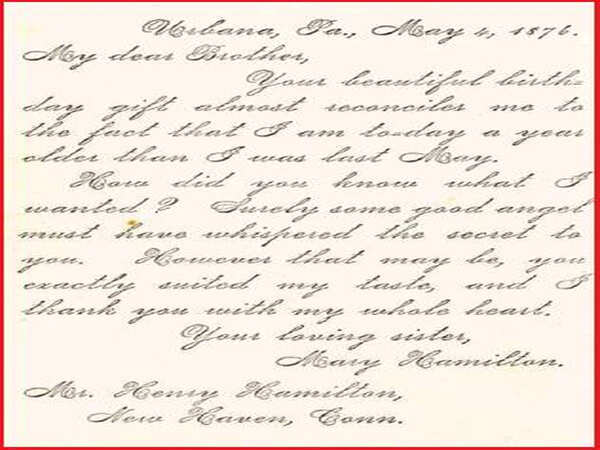 Urbana, Pa., May 4, 1876.
My dear Brother,
Your beautiful birth=
day gift almost reconciles me to
the fact that I am to=day a year
older than I was last May.
How did you know what I
wanted? Surely some good angel
must have whispered the secret to
you. However that may be, you
exactly suited my taste, and I
thank you with my whole heart.
Your loving sister,
Mary Hamilton.
Mr. Henry Hamilton,
New Haven, Conn.